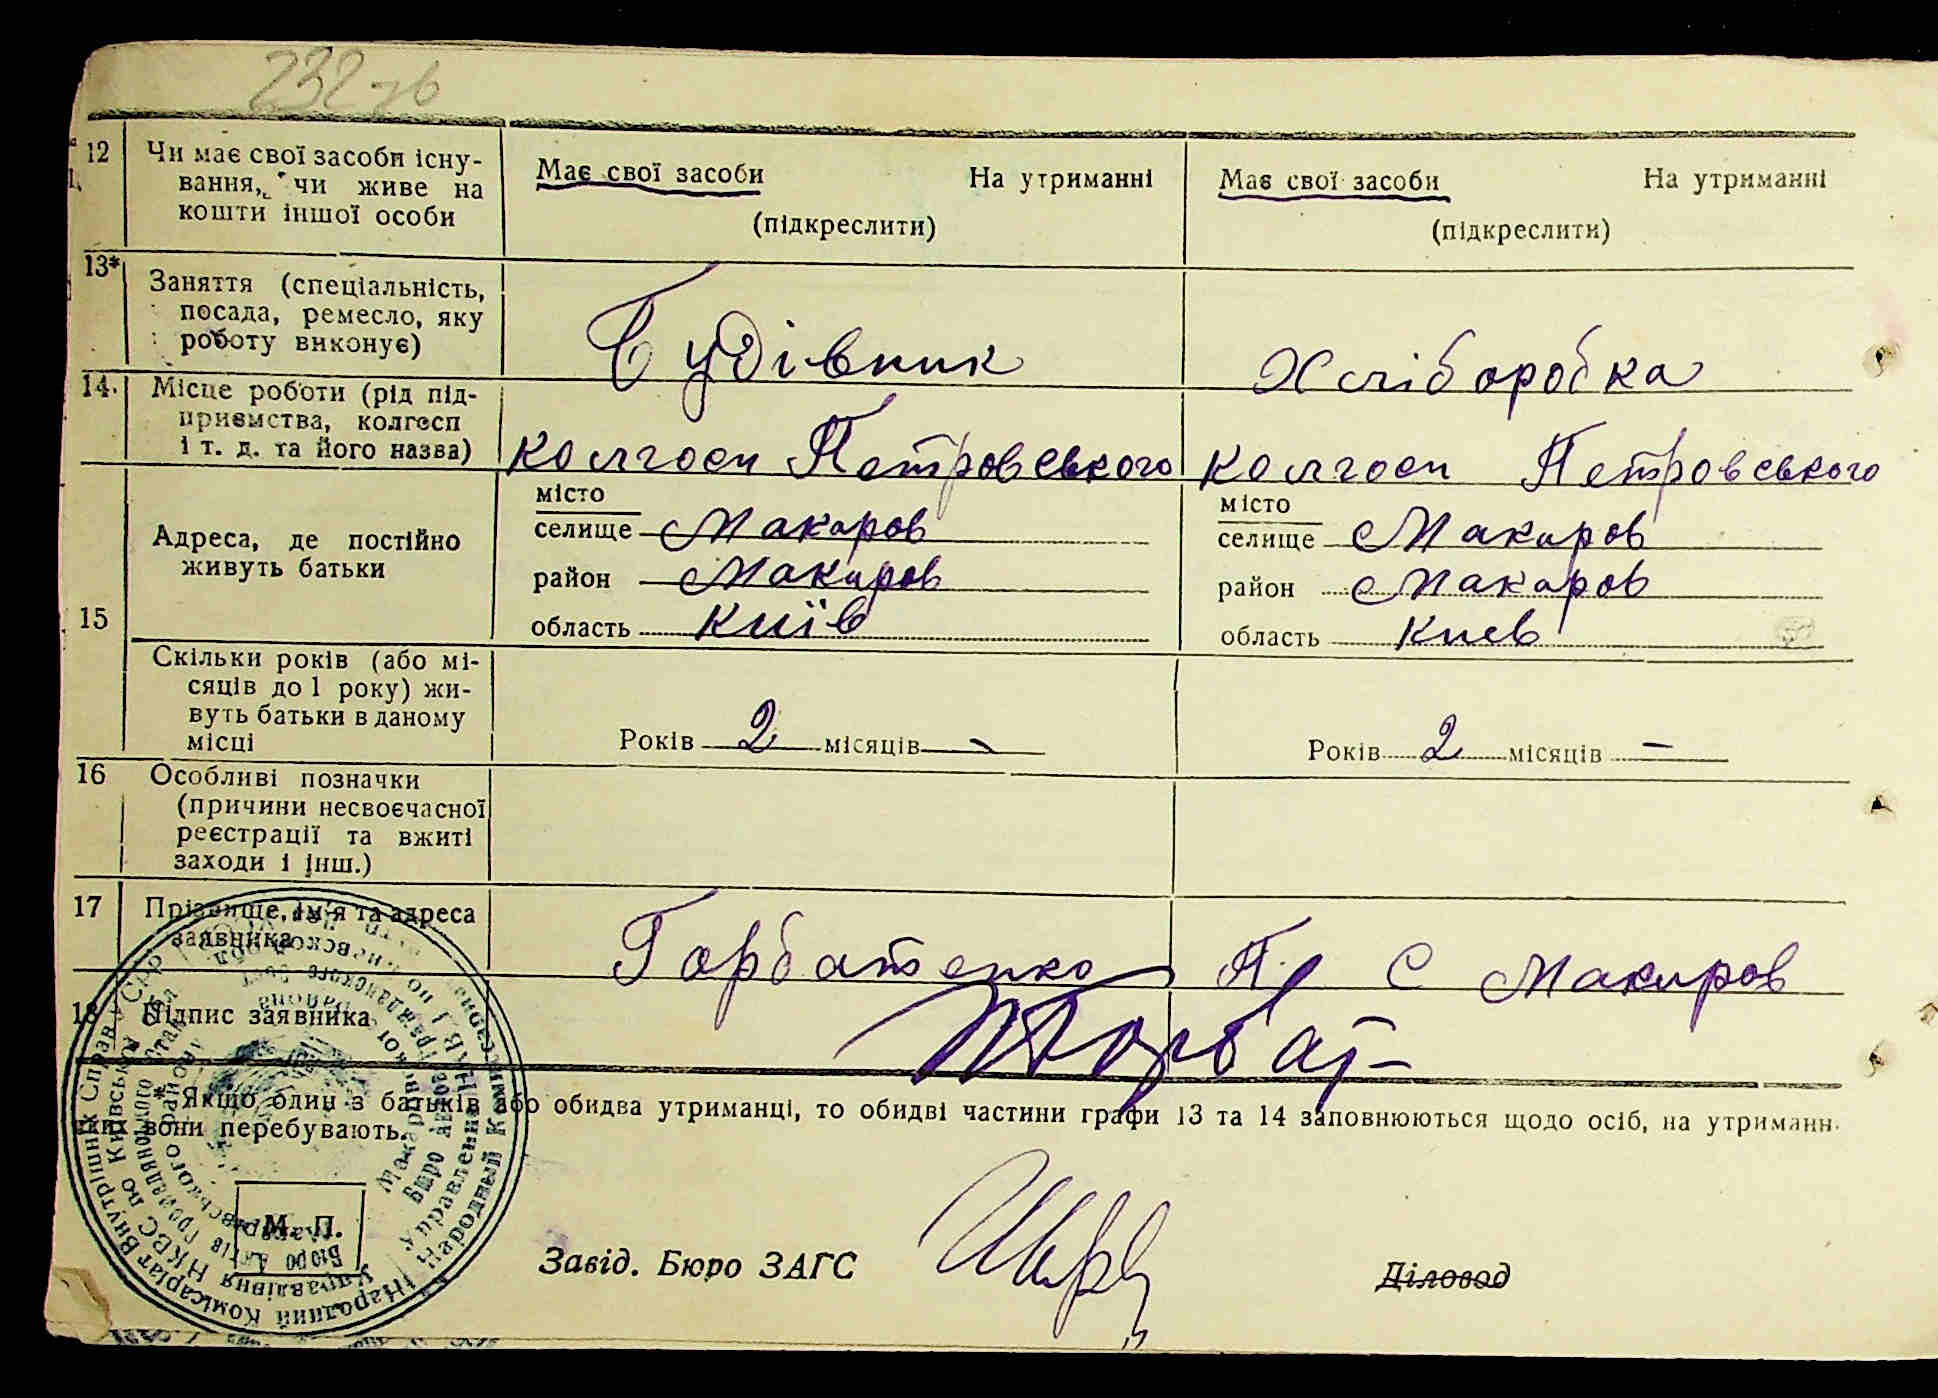 232 зв
12 Чи має свої засоби існу-
вання, чи живе на
кошти іншої особи
Має свої засоби На утриманні
(підкреслити)
Має свої засоби На утриманні
(підкреслити)
13* Заняття (спеціальність,
посада, ремесло, яку
роботу виконує)
Будівник
Хліборобка
14. Місце роботи (рід під-
приємства, колгосп
і т. д. та його назва)
колгосп Петровського
колгосп Петровського
15 Адреса, де постійно
живуть батьки
місто
селище Макаров
район Макаров
область Київ
місто
селище Макаров
район Макаров
область Киев
Скільки років (або мі-
сяців до 1 року) жи-
вуть батьки в даному
місці
Років 2 місяців -
Років 2 місяців -
16 Особливі позначки
(причини несвоєчасної
реєстрації та вжиті
заходи і інш.)
17 Прізвище, ім'я та адреса
заявника
Горбатенко П. С Макаров
18 Підпис заявника
Горбат
* Якщо один з батьків або обидва утриманці, то обидві частини графи 13 та 14 заповнюються щодо осіб, на утриманн
яких вони перебувають.
М. П.
Завід. Бюро ЗАГС
Діловод
Народний Комісаріат Внутрішніх Справ УСРР
Управління НКВС по Київській
Народный Комиссариат
Управление НКВД по